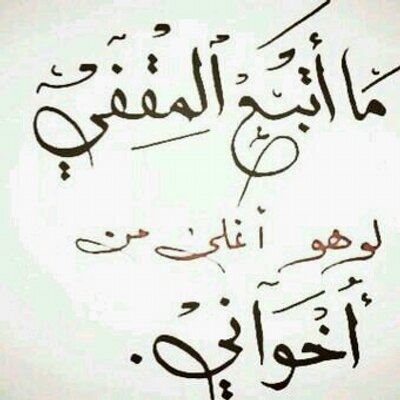 مَا أَتْبَعْ ٱلمِقْفَيْ
لو هو أغلى من
أُخْوَآنيْ.